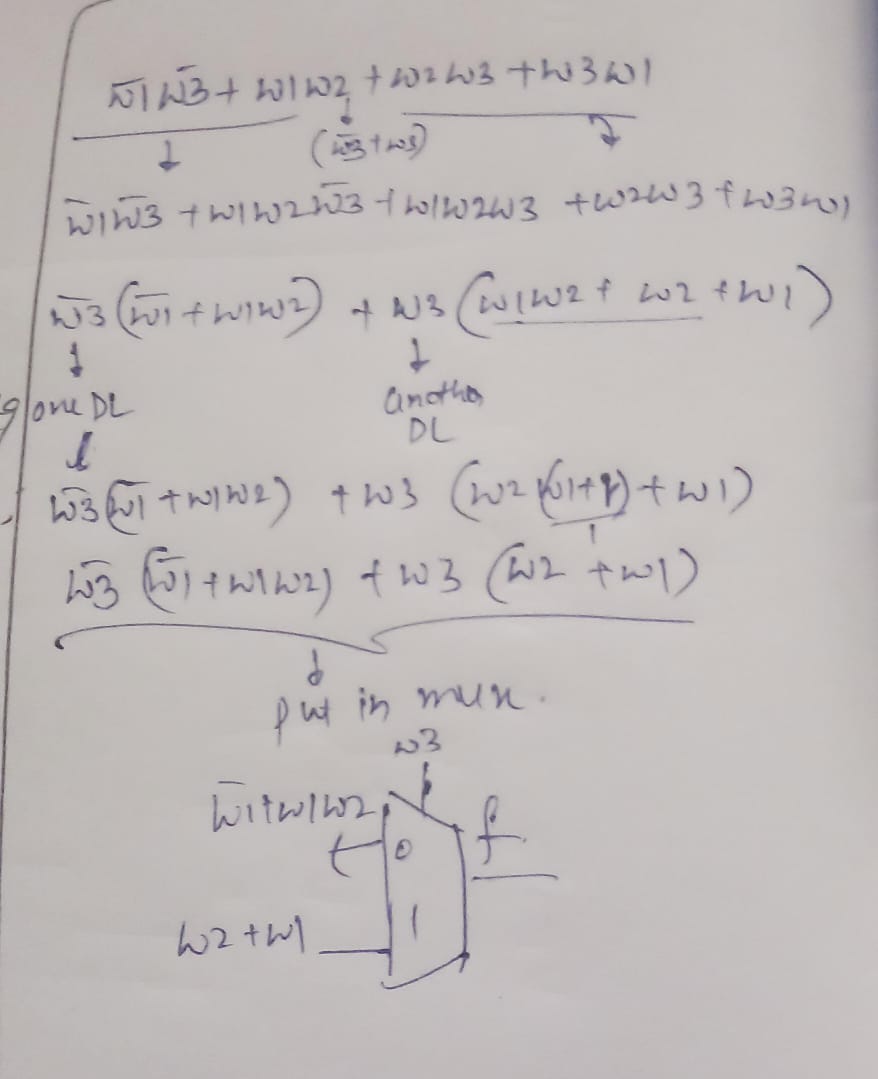 w̄1w̄3 + w1w2 + w2w3 + w3w1
(w̄3+w3)
w̄1w̄3 + w1w2w̄3 + w1w2w3 + w2w3 + w3w1
w̄3(w̄1 + w1w2) + w3(w1w2 + w2 + w1)
one DL
another
DL
w̄3(w̄1 + w1w2) + w3(w2(w1+1) + w1)
1
w̄3(w̄1 + w1w2) + w3(w2 + w1)
put in mux.
w3
w̄1+w1w2
0
f
w2+w1
1